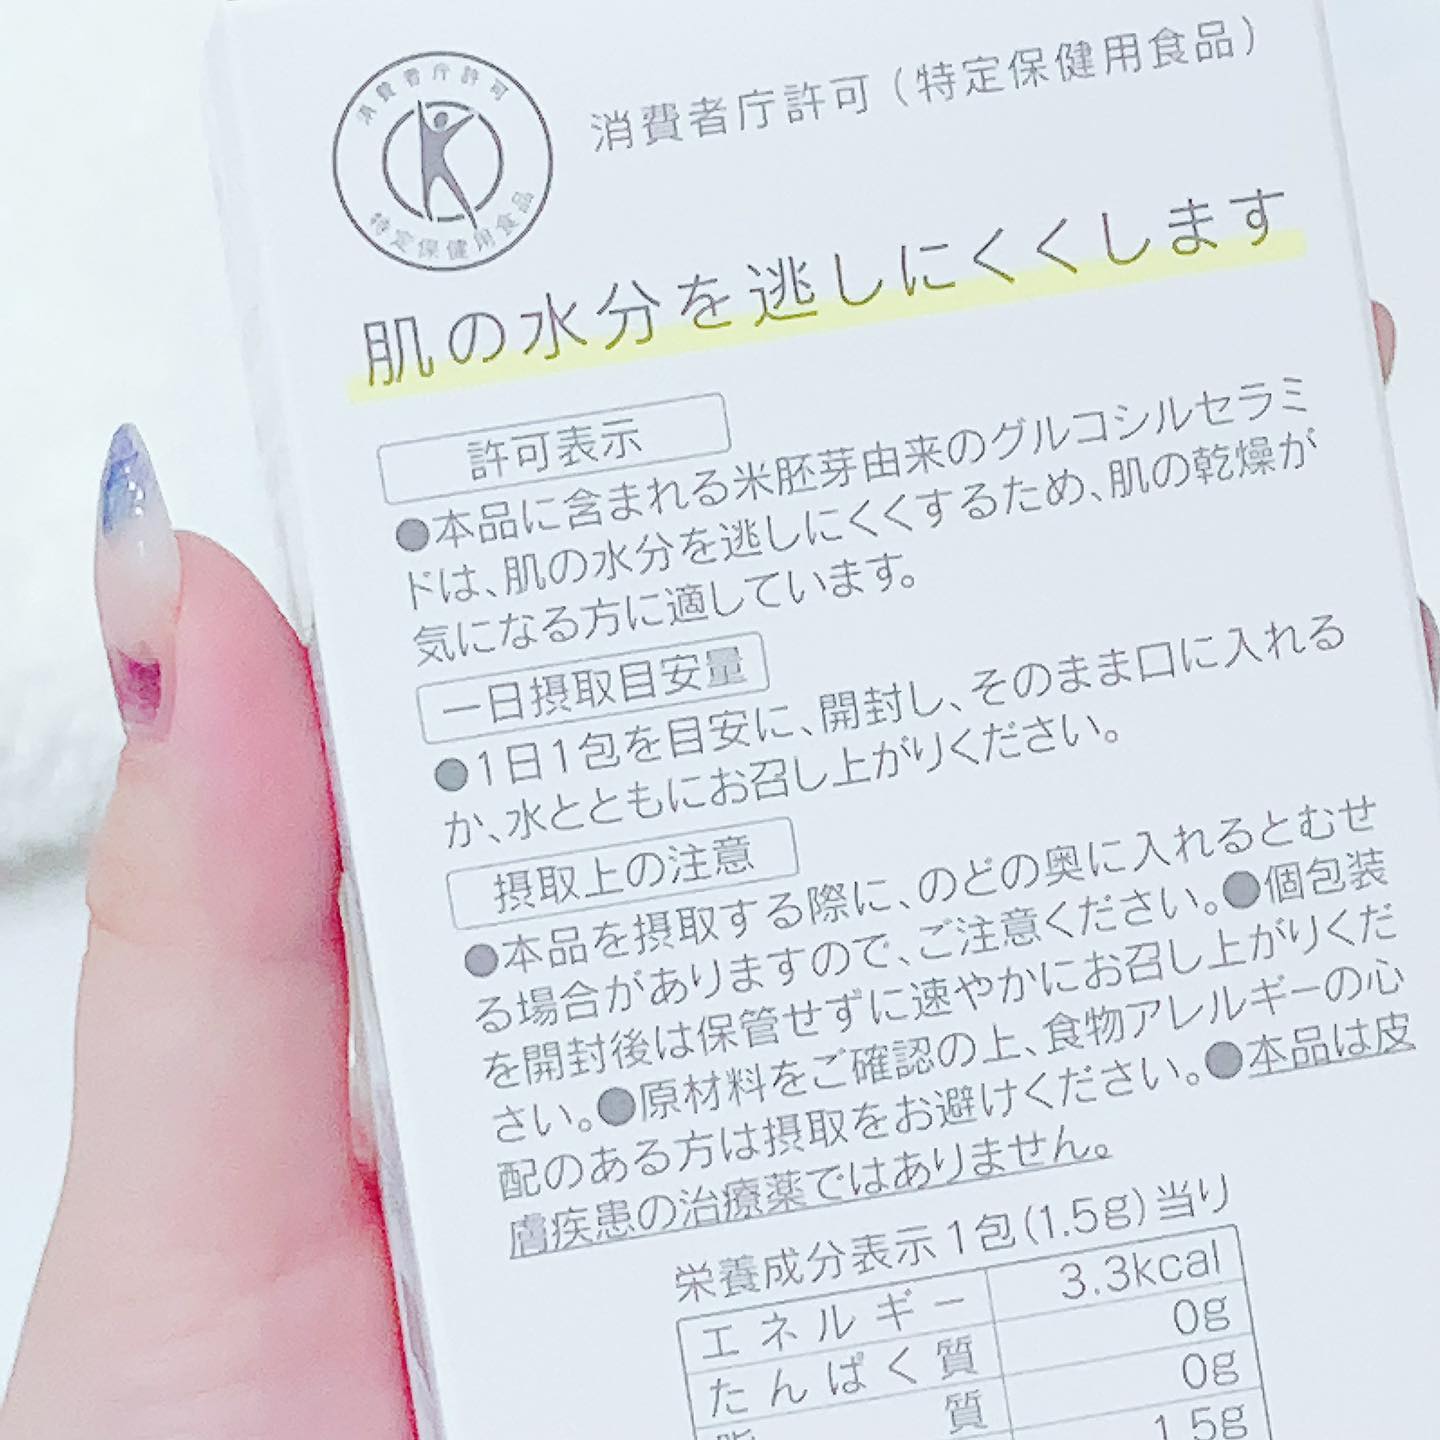 消費者庁許可
特定保健用食品
消費者庁許可(特定保健用食品)
肌の水分を逃しにくくします
許可表示
●本品に含まれる米胚芽由来のグルコシルセラミ
ドは、肌の水分を逃しにくくするため、肌の乾燥が
気になる方に適しています。
一日摂取目安量
●1日1包を目安に、開封し、そのまま口に入れる
か、水とともにお召し上がりください。
摂取上の注意
●本品を摂取する際に、のどの奥に入れるとむせ
る場合がありますので、ご注意ください。●個包装
を開封後は保管せずに速やかにお召し上がりくだ
さい。●原材料をご確認の上、食物アレルギーの心
配のある方は摂取をお避けください。●本品は皮
膚疾患の治療薬ではありません。
栄養成分表示1包(1.5g)当り
エネルギー 3.3kcal
たんぱく質 0g
質 0g
1.5g